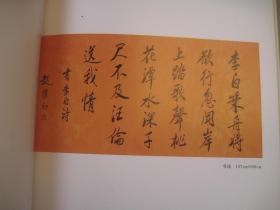 李白乘舟将
欲行忽闻岸
上踏歌声桃
花潭水深千
尺不及汪伦
送我情
书李白诗
赵朴初